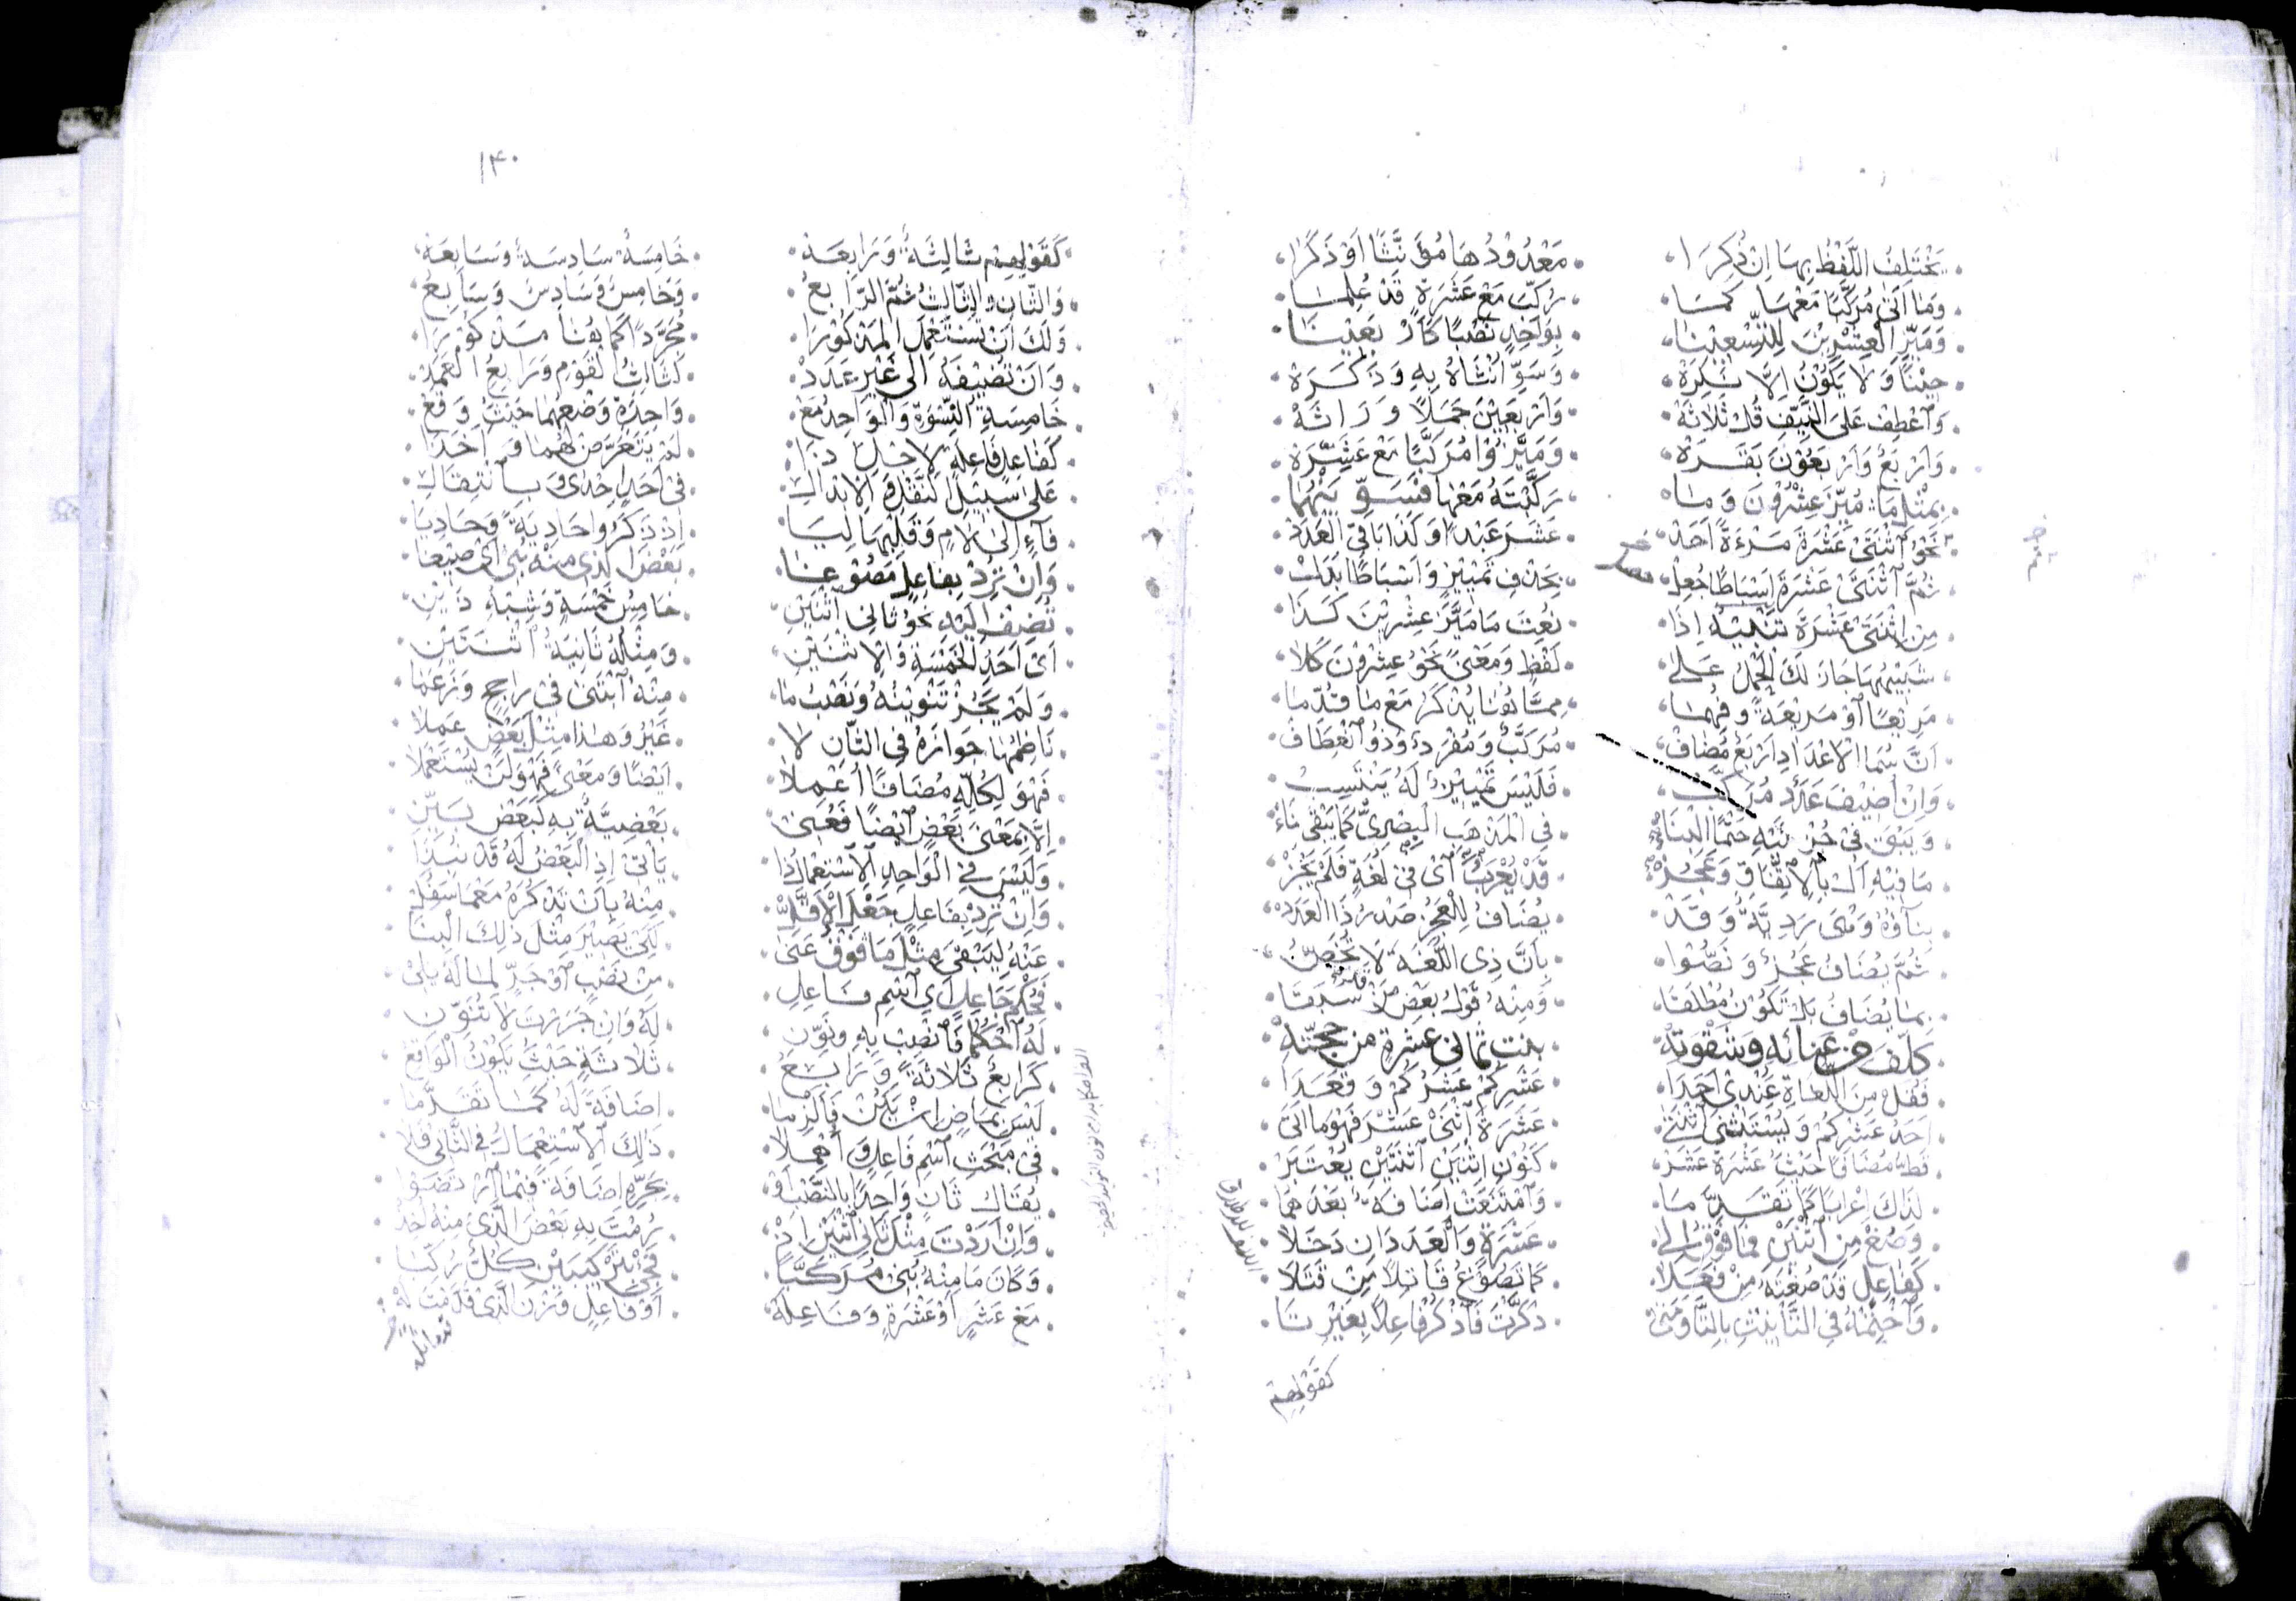 يَخْتَلِفُ اللَّفْظُ بِهَا اِنْ ذُكِرَا مَعْدُوْدُهَا مُؤَنَّثًا اَوْ ذَكَرًا
وَمَا اَتٰى مُرَكَّبًا مَعْهَا كَمَا رُكِّبَ مَعْ عَشَرَةٍ قَدْ عُلِمَا
وَمَيِّزِ الْعِشْرِيْنَ لِلتِّسْعِيْنَا بِوَاحِدٍ نَصْبًا كَاَرْبَعِيْنَا
حِيْنًا وَلَا يَكُوْنُ اِلَّا نَكِرَةْ وَسَوِّ اُنْثَاهُ بِهِ وَذَكَرَهْ
وَاعْطِفْ عَلَى النَّيِّفِ قُلْ ثَلَاثَةْ وَاَرْبَعِيْنَ جَمَلًا وَرَاثَهْ
وَاَرْبَعٌ وَاَرْبَعُوْنَ بَقَرَةْ وَمَيَّزُوْا مُرَكَّبًا مَعْ عَشَرَةْ
بِمِثْلِ مَا مُيِّزَ عِشْرُوْنَ وَمَا رَكَّبْتَهُ مَعْهَا فَسَوِّ بَيْنَهُمَا
نَحْوُ اثْنَتَيْ عَشْرَةَ مَرْءَةً اَحَدْ عَشَرَ عَبْدًا وَكَذَا بَاقِي الْعَدَدْ
ثُمَّ اثْنَتَيْ عَشْرَةَ اَسْبَاطًا جُعِلْ بِحَذْفِ تَمْيِيْزٍ وَاَسْبَاطًا بَدَلْ
مِنِ اثْنَتَيْ عَشْرَةَ تَنْبِيْهٌ اِذَا نُعِتَ مَا مَيَّزَ عِشْرِيْنَ كَذَا
شَبِيْهُهَا جَازَ لَكَ الْحَمْلُ عَلٰى لَفْظٍ وَمَعْنًى نَحْوُ عِشْرُوْنَ كَلَا
اَنْ سُمَا الْاَعْدَادِ اَرْبَعٌ مُضَافْ مُرَكَّبٌ وَمُفْرَدٌ وَذُو انْعِطَافْ
وَاِنْ اُضِيْفَ عَدَدٌ مُرَكَّبُ فَلَيْسَ تَمْيِيْزٌ لَهُ يَنْتَسِبُ
وَيَبْقَ فِيْ جُزْئَيْهِ حَتْمًا الْبِنَاءْ فِي الْمَذْهَبِ الْبِصْرِيِّ كَمَا يَبْقٰى بِنَاءْ
مَا فِيْهِ اَلْ بِالْاِتِّفَاقِ وَعَجُزْ قَدْ يُعْرَبُ اَيْ فِيْ لُغَةٍ فَلَمْ يَجُزْ
بِنَاؤُهُ وَهْيَ رَدِيَّةٌ وَقَدْ يُضَافُ لِلْعَجُزِ صَدْرُ ذَا الْعَدَدْ
ثُمَّ يُضَافُ عَجُزٌ وَنَصُّوْا بِاَنَّ ذِي اللُّغَةَ لَا تُخَصُّ
بِمَا يُضَافُ بَلْ تَكُوْنُ مُطْلَقَا وَمِنْهُ قَوْلُ بَعْضِ مَنْ
كُلِّفَ مِنْ عَنَائِهِ وَشِقْوَتِهْ بِنْتَ ثَمَانِيْ عَشْرَةٍ مِنْ حِجَّتِهْ
اَحَدَ عَشَرَكُمْ وَيُسْتَثْنٰى اثْنَتَيْ عَشْرَةَ اثْنَيْ عَشَرَ فَهْوَ مَا اَتٰى
قَطُّ مُضَافًا حَيْثُ عَشْرَةَ عَشَرْ كَنُوْنِ اثْنَيْنِ اثْنَتَيْنِ يُعْتَبَرْ
لِذَاكَ اِعْرَابًا كَمَا تَقَدَّمَا وَامْتَنَعَتْ اِضَافَةٌ بَعْدَهُمَا
وَصُغْ مِنِ اثْنَيْنِ فَمَا فَوْقُ اِلٰى عَشَرَةٍ وَالْعَدَدَانِ دَخَلَا
كَفَاعِلٍ قَدْ صُغْتَهُ مِنْ فَعَلَا كَمَا تَصُوْغُ قَاتِلًا مِنْ قَتَلَا
وَاخْتِمْهُ فِي التَّأْنِيْثِ بِالتَّا وَمَتٰى ذَكَّرْتَ فَاذْكُرْ فَاعِلًا بِغَيْرِ تَا
كَقَوْلِهِمْ
١٤٠
كَقَوْلِهِمْ ثَالِثَةٌ وَرَابِعَةْ خَامِسَةٌ سَادِسَةٌ وَسَابِعَةْ
وَالثَّانِ وَالثَّالِثُ ثُمَّ الرَّابِعُ وَخَامِسٌ وَسَادِسٌ وَسَابِعُ
وَلَكَ اَنْ تَسْتَعْمِلَ الْمَذْكُوْرَا مُجَرَّدًا كَمَا هُنَا مَذْكُوْرَا
وَاَنْ تُضِيْفَهُ اِلٰى غَيْرِ عَدَدْ كَثَالِثُ الْقَوْمِ وَرَابِعُ الْعَمَدْ
خَامِسَةِ النِّسْوَةِ وَالْوَاحِدُ مَعْ وَاحِدَةٍ وَضْعُهُمَا حَيْثُ وَقَعْ
عَلٰى سَبِيْلِ النَّقْلِ وَالْاِبْدَالِ فِيْ اَحَدٍ اِحْدٰى وَبِانْتِقَالِ
فَاءٍ اِلٰى لَامٍ وَقَلْبِهَا لِيَا اِذْ ذَكَرُوْا حَادِيَةً وَحَادِيَا
وَاِنْ تُرِدْ بِفَاعِلٍ مَصُوْغِنَا بَعْضَ الَّذِيْ مِنْهُ بُنِيْ اَيْ صِيْغَا
تُضِفْ اِلَيْهِ نَحْوُ ثَانِي اثْنَيْنِ خَامِسُ خَمْسَةٍ وَشِبْهُ ذَيْنِ
اَيْ اَحَدِ الْخَمْسَةِ وَالْاِثْنَيْنِ وَمِثْلُهُ ثَانِيَةُ اثْنَتَيْنِ
وَلَمْ يَجُزْ تَنْوِيْنُهُ وَنَصْبُ مَا مِنْهُ ابْتَنٰى فِيْ رَاجِحٍ وَزَعَمَا
نَاظِمُهَا جَوَازَهُ فِي الثَّانِ لَا غَيْرُ وَهٰذَا مِثْلُ بَعْضٍ عَمَلَا
فَهْوَ لِكُلِّهِ مُضَافًا اُعْمِلَا اَيْضًا وَمَعْنًى فَهْوَ لَنْ يُسْتَعْمَلَا
اِلَّا بِمَعْنٰى بَعْضٍ اَيْضًا فَعُنِيْ بَعْضِيَّةٌ بِهِ لِبَعْضٍ بَيِّنِ
وَلَيْسَ فِي الْوَاحِدِ الْاِسْتِعْمَالُ ذَا يَأْتِيْ اِذِ الْبَعْضُ لَهُ قَدْ نُبِذَا
وَاِنْ تُرِدْ بِفَاعِلٍ جَعْلَ الْاَقَلّْ مِنْهُ بِاَنْ تَذْكُرَهُ مَعْ مَا سَفَلْ
عَنْهُ لِيَبْقٰى مِثْلَ مَا فَوْقُ عَنٰى لِكَيْ يَصِيْرَ مِثْلَ ذٰلِكَ الْبِنَا
فَحُكْمَ جَاعِلٍ اَيِ اسْمِ فَاعِلِ مِنْ نَصْبٍ اَوْ جَرٍّ لِمَا لَهُ يَلِيْ
لَهُ احْكُمَا فَانْصِبْ بِهِ وَنَوِّنِ لَهُ وَاِنْ جَرَرْتَ لَا تُنَوِّنِ
كَرَابِعٌ ثَلَاثَةً وَرَابِعُ ثَلَاثَةٍ حَيْثُ يَكُوْنُ الْوَاقِعُ
لَيْسَ بِمَاضٍ اِنْ يَكُنْ فَاَلْزِمَا اِضَافَةً لَهُ كَمَا تَقَدَّمَا
فِيْ مَبْحَثِ اسْمِ فَاعِلٍ وَاُهْمِلَا ذٰلِكَ الْاِسْتِعْمَالُ فِي الثَّانِيْ فَلَا
يُقَالُ ثَانٍ وَاحِدًا بِالنَّصْبِ اَوْ بِجَرِّهِ اِضَافَةً
وَاِنْ اَرَدْتَ مِثْلَ ثَانِي اثْنَيْنِ اِذْ رُمْتَ بِهِ بَعْضَ الَّذِيْ مِنْهُ اُخِذْ
وَكَانَ مَا مِنْهُ بُنِيْ مُرَكَّبَا فَجِئْ بِتَرْكِيْبَيْنِ كُلٌّ رُكِّبَا
مَعْ عَشَرٍ اَوْ عَشْرَةٍ وَفَاعِلَهْ اَوْ فَاعِلٍ وَزْنَ الَّذِيْ قَدَّمْتُ لَهْ